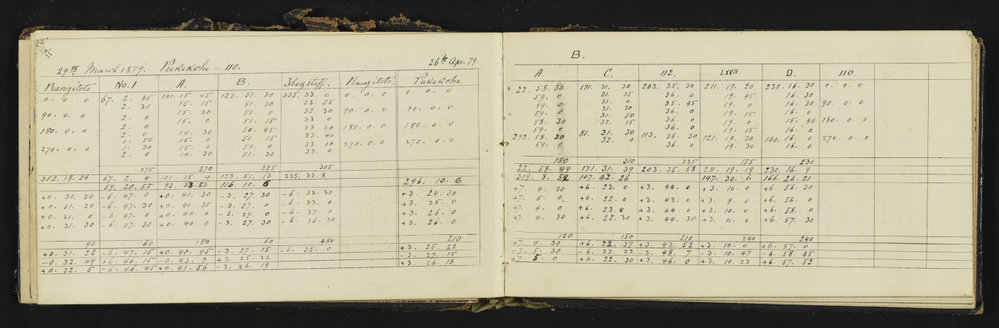 29th March 1879. Pukekohe - 110. 26th Apr. 79.
Rangitoto No. 1 A. B. Flagstaff Rangitoto Pukekohe
0. 0. 0 67. 2. 45 101. 15. 45 123. 51. 30 335. 33. 0 0. 0. 0 0. 0. 0
2. 30 15. 15 51. 30 33. 25
90. 0. 0 2. 0 15. 30 51. 0 32. 30 90. 0. 0 90. 0. 0
2. 0 15. 0 51. 15 33. 0
180. 0. 0 2. 0 14. 30 50. 45 33. 30 180. 0. 0 180. 0. 0
1. 50 15. 0 51. 15 33. 40
270. 0. 0 1. 30 15. 0 51. 0 33. 10 270. 0. 0 270. 0. 0
2. 0 14. 30 51. 30 33. 0
275 270 225 305
353. 18. 56 67. 2. 4 101. 15. 4 123. 51. 13 335. 33. 8
59. 20. 55 93. 33. 53 116. 10. 6 296. 10. 6
+0. 31. 30 -6. 47. 0 +0. 41. 30 -3. 27. 30 -6. 33. 0 +3. 24. 30
+0. 31. 30 -6. 47. 30 +0. 41. 30 -3. 27. 0 -6. 36. 0 +3. 25. 0
+0. 31. 0 -6. 47. 0 +0. 40. 0 -3. 27. 0 -6. 37. 0 +3. 26. 0
+0. 31. 30 -6. 47. 30 +0. 40. 0 -3. 27. 30 -6. 36. 30 +3. 26. 0
90 60 180 60 480 210
+0. 31. 22 -6. 47. 15 +0. 40. 45 -3. 27. 15 -6. 35. 0 +3. 25. 22
-0. 32. 49 +6. 46. 15 -0. 43. 7 +3. 25. 22 +3. 27. 15
+0. 32. 5 -6. 46. 45 +0. 41. 56 -3. 26. 18 +3. 26. 18
B.
A C. 112. LXVII. D. 110.
22. 58. 30 171. 31. 30 203. 35. 30 211. 19. 20 230. 16. 30 0. 0. 0
59. 0 31. 35 36. 0 19. 45 16. 30
59. 0 31. 30 35. 45 19. 0 16. 30 90. 0. 0
59. 0 31. 50 36. 0 19. 15 16. 0
58. 30 32. 15 36. 0 19. 0 15. 40 180. 0. 0
59. 0 36. 0 19. 15 16. 0
292. 58. 30 81. 31. 30 113. 36. 30 121. 19. 30 140. 16. 0 270. 0. 0
59. 0 32. 0 36. 0 19. 30 16. 30
180 310 225 155 230
22. 58. 49 171. 31. 39 203. 35. 58 211. 19. 19 230. 16. 9
319. 8. 52 107. 02. 26 147. 30. 6 166. 26. 21
+7. 4. 30 +6. 23. 0 +3. 44. 0 +3. 10. 0 +6. 56. 30
+7. 5. 0 +6. 22. 0 +3. 43. 0 +3. 9. 0 +6. 56. 0
+7. 4. 0 +6. 23. 0 +3. 44. 0 +3. 10. 0 +6. 58. 0
+7. 4. 30 +6. 22. 30 +3. 44. 30 +3. 11. 0 +6. 57. 30
120 150 210 240 240
+7. 4. 30 +6. 22. 37 +3. 43. 52 +3. 10. 0 +6. 57. 0
-7. 5. 30 -6. 22. 22 -3. 48. 7 -3. 10. 47 -6. 58. 45
+7. 5. 0 +6. 22. 30 +3. 46. 0 +3. 10. 23 +6. 57. 52